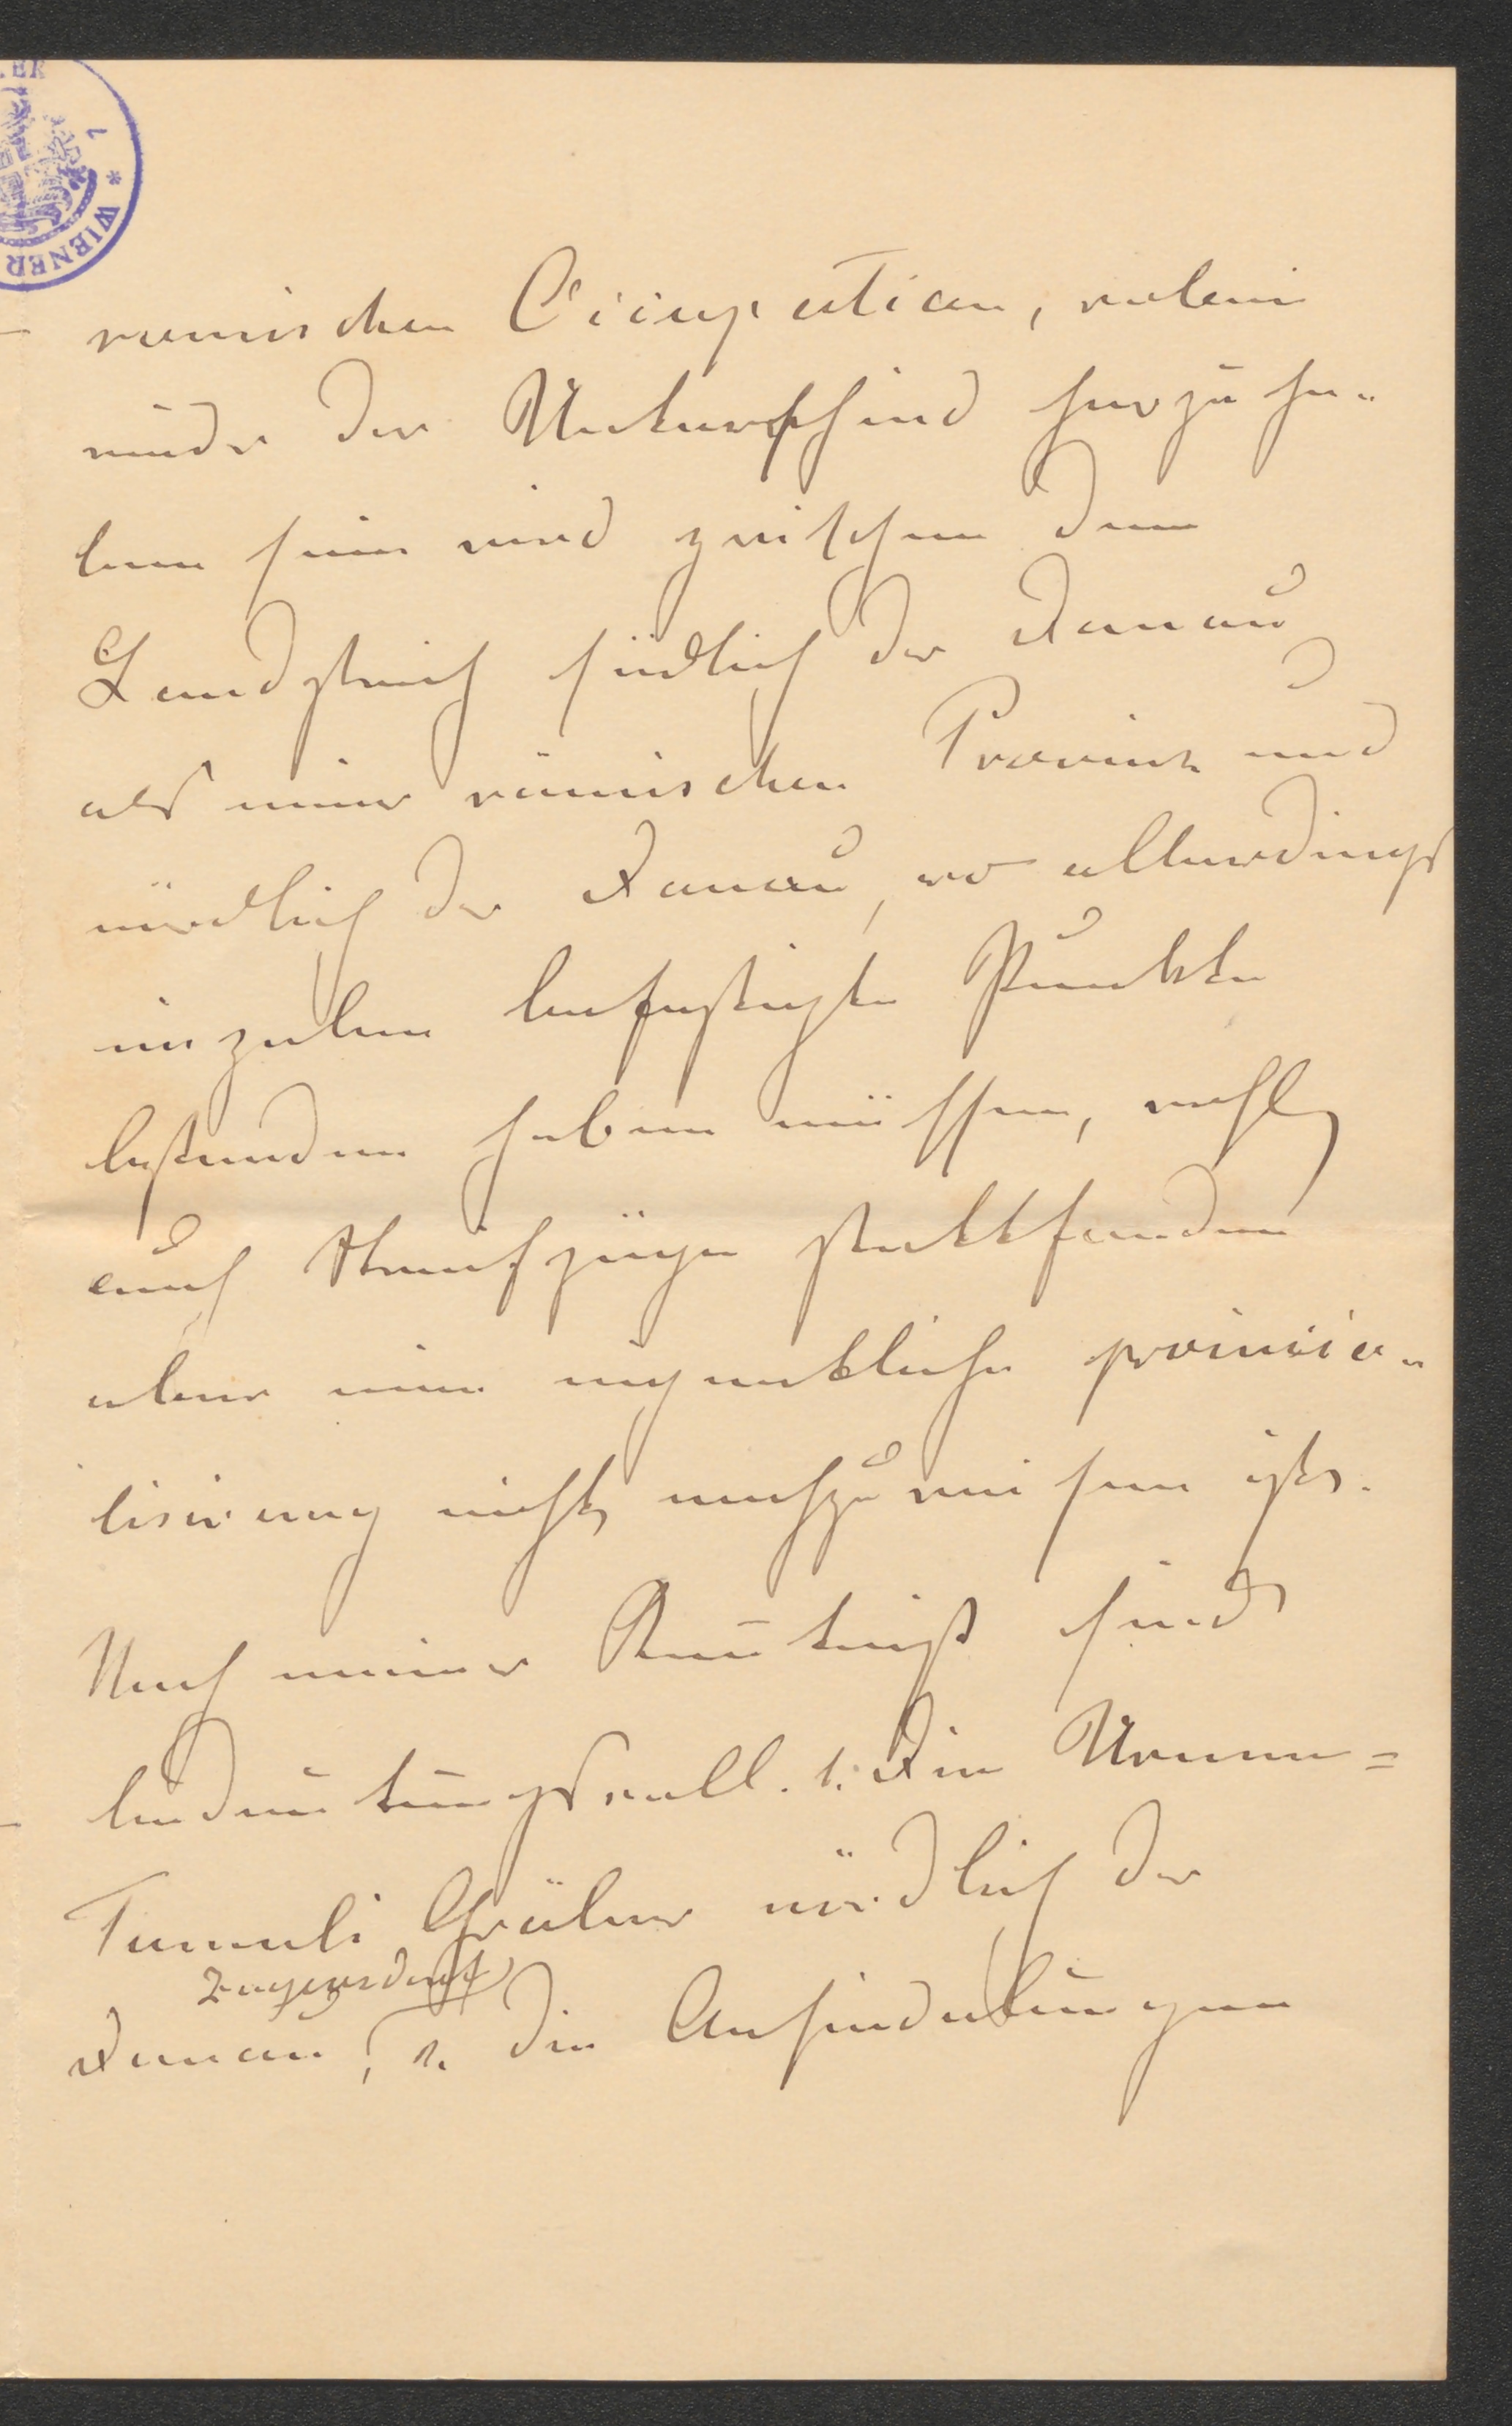 WIENER
römischen Occupation, wobei
wieder der Unterschied hervzuhe-
ben sein wird zwischen dem
Landstrich südlich der Donau
als einer römischen Provinz und
nördlich der Donau, wo allerdings
einzelne befestigte Punkte
bestanden haben müssen, wohl
auch Streifzüge stattfanden
aber eine eigentliche provincia-
lisirung nicht nachzuweisen ist.
Nach meiner Kenntniß sind
bedeutungsvoll. 1. Die Urnen=
Tumuli Gräber nördlich der
Zögersdorf
Donau, 2. die Ansiedelungen